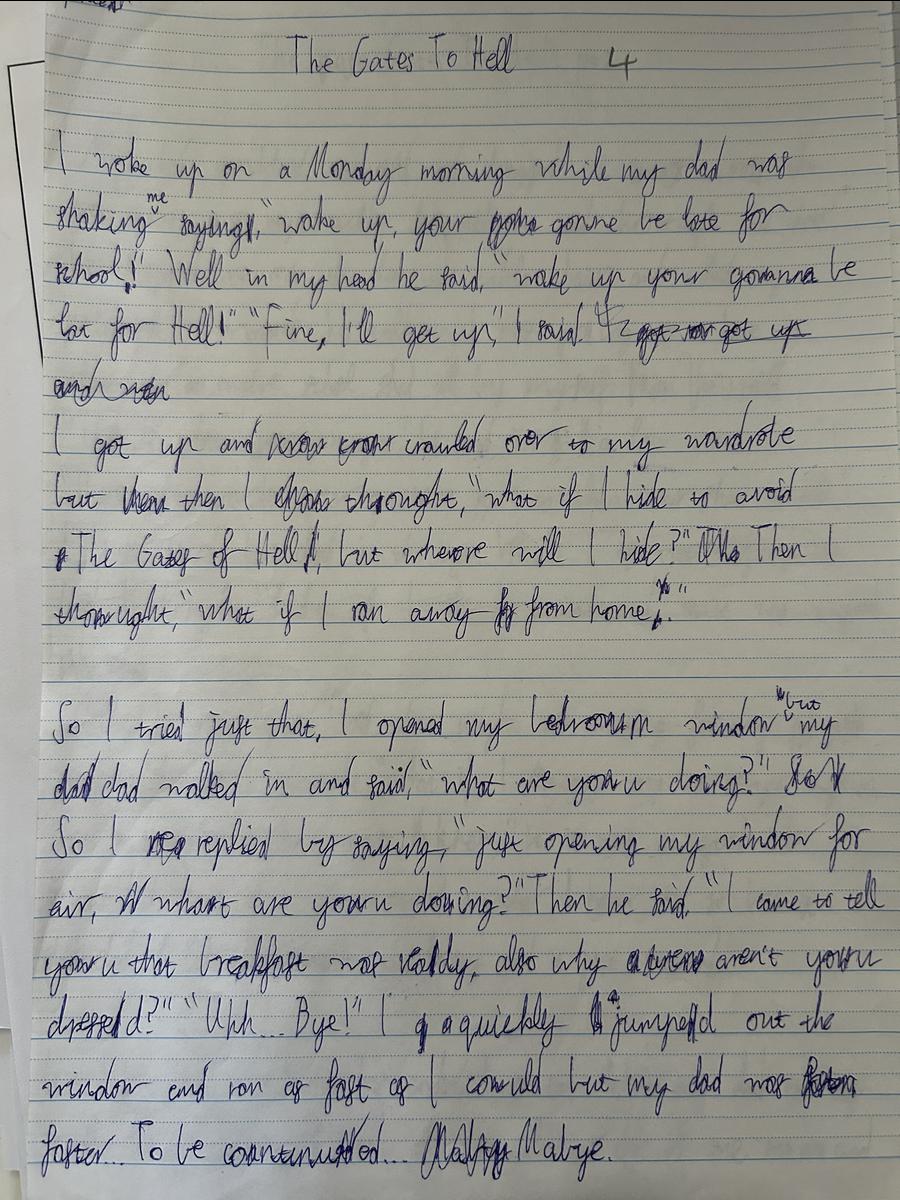 The Gates To Hell 4
I woke up on a Monday morning while my dad was
shaking me saying, "wake up, your gonne be late for
school!" Well in my head he said, "wake up your gowanna be
lat for Hell!" "Fine, I'll get up," I said. got up
and
I got up and crawled over to my wardrobe
but then I throught, "what if I hide to avoid
The Gates of Hell, but where will I hide?" Then I
thought, "what if I ran away from home."
So I tried just that, I opened my bedroom window but my
dad dad walked in and said, "what are you doing?" So I
So I replied by saying, "just opening my window for
air, what are you doing?" Then he said, "I came to tell
you that breakfast was ready, also why aren't you
dressed?" "Uhh... Bye!" I quickly jumped out the
window and ran as fast as I could but my dad was
faster... To be continued... Mabye.